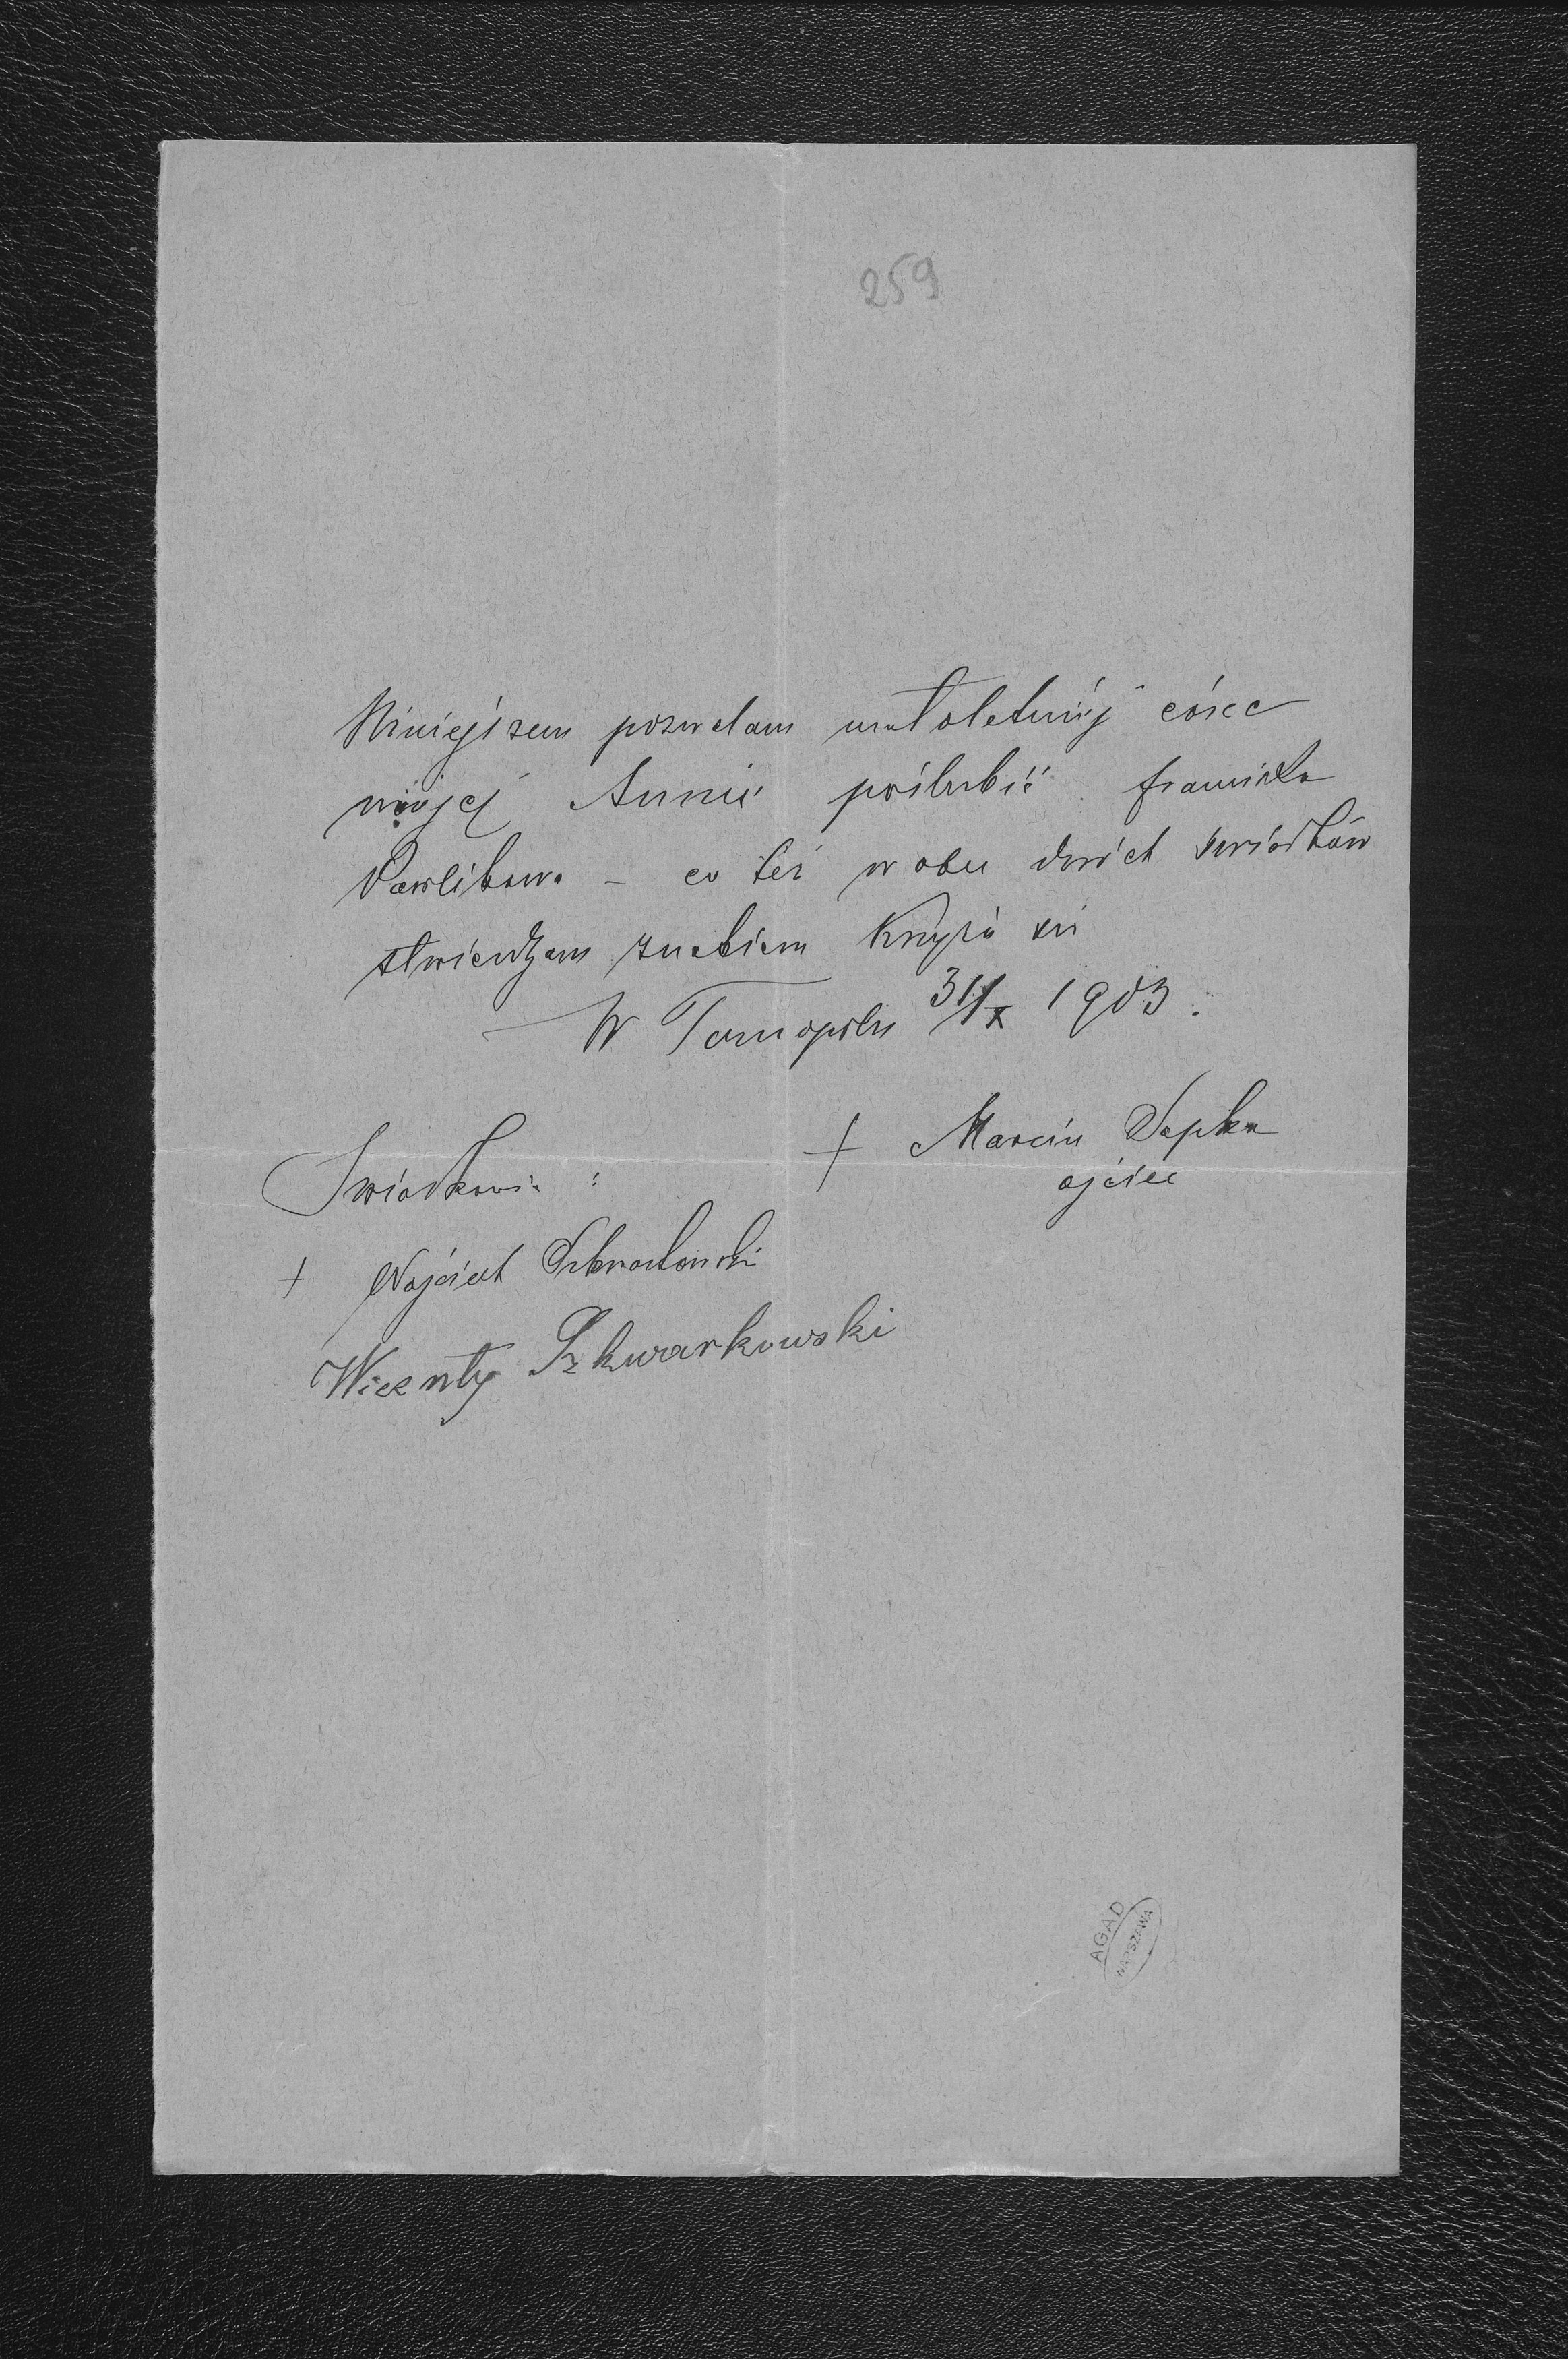 259
Niniejszem pozwalam małoletniej córce
mojej Annie poślubić Franciszka
Pawlikowa – co też w obec dwóch świadków
stwierdzam znakiem krzyża św
W Tarnopolu 31/X 1903.
+ Marcin Sepka
ojciec
Świadkowie :
+ Wojciech
Wicenty Szkwarkowski
AGAD
WARSZAWA